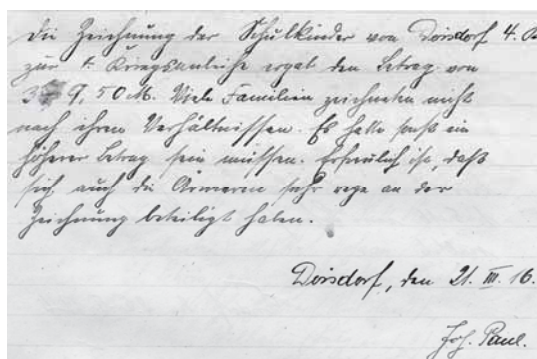 Die Zeichnung der Schulkinder von Doisdorf 4.
zur Kriegsanleihe ergab den Betrag von
9,50 M. Viele Familien zeichneten nicht
nach ihren Verhältnissen. Es hätte sonst ein
höherer Betrag sein müssen. Erfreulich ist, daß
sich auch die Ärmeren sehr rege an der
Zeichnung beteiligt haben.
Doisdorf, den 21. III. 16.
Joh. Paul.